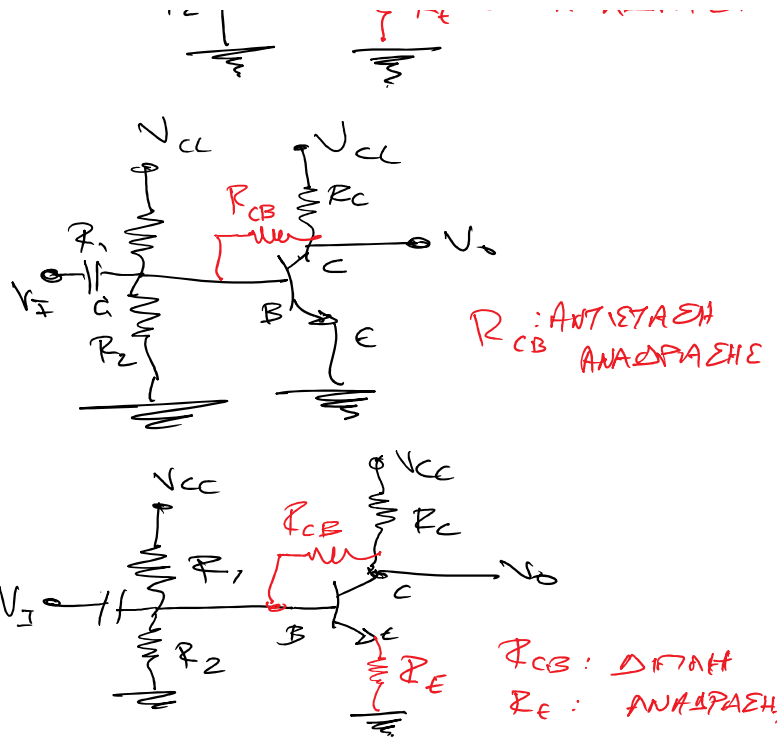 R_E
V_CC
V_CC
R_CB
R_C
R_1
V_o
C
V_I
C_1
B
R_2
E
R_CB : ΑΝΤΙΣΤΑΣΗ
ΑΝΑΔΡΑΣΗΣ
V_CC
V_CC
R_CB
R_C
R_1
V_o
C
V_I
B
E
R_2
R_E
R_CB : ΔΙΠΛΗ
R_E : ΑΝΑΔΡΑΣΗ